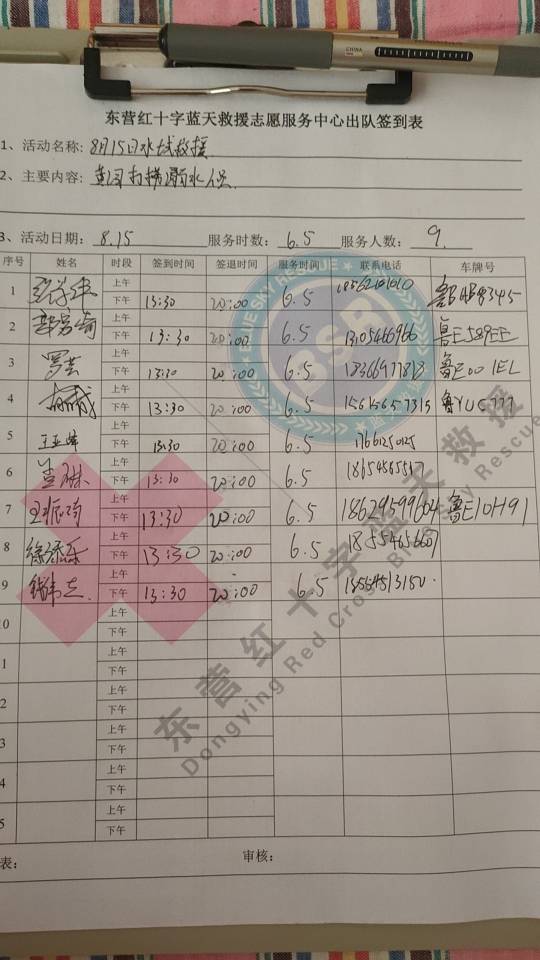 CHINA
东营红十字蓝天救援志愿服务中心出队签到表
1、活动名称: 8月15日水域救援
2、主要内容: 黄河打捞溺水人员
3、活动日期: 8.15 服务时数: 6.5 服务人数: 9.
序号 姓名 时段 签到时间 签退时间 服务时间 联系电话 车牌号
1 上午
下午 13:30 20:00 6.5
2 上午
下午 13:30 20:00 6.5 鲁E589EE
3 罗芸 上午
下午 13:30 20:00 6.5 18366977818 鲁E001EL
4 上午
下午 13:30 20:00 6.5 15615657315 鲁YUC777
5 上午
下午 13:30 20:00 6.5 17661250125
6 上午
下午 13:30 20:00 6.5
7 上午
下午 13:30 20:00 6.5 18629699604 鲁E10H91
8 徐添乐 上午
下午 13:30 20:00 6.5 18554656607
9 上午
下午 13:30 20:00 6.5
10 上午
下午
1 上午
下午
2 上午
下午
3 上午
下午
4 上午
下午
5 上午
下午
表: 审核:
BLUE SKY RESCUE
BSR
东营红十字蓝天救援
Dongying Red Cross Blue Sky Rescue